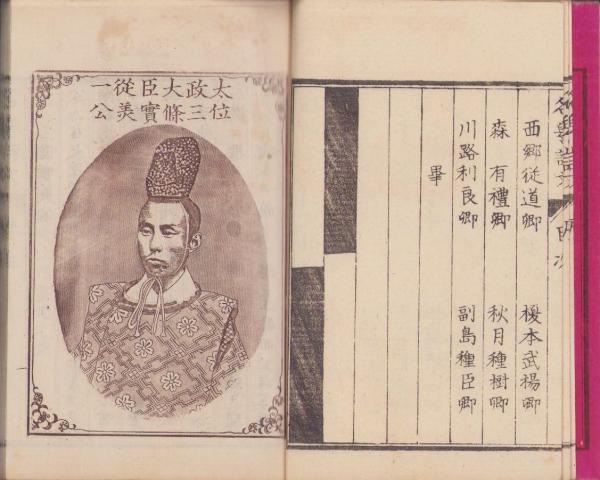 西郷従道卿 榎本武揚卿
森 有禮卿 秋月種樹卿
川路利良卿 副島種臣卿
畢
太政大臣從一
位三條實美公